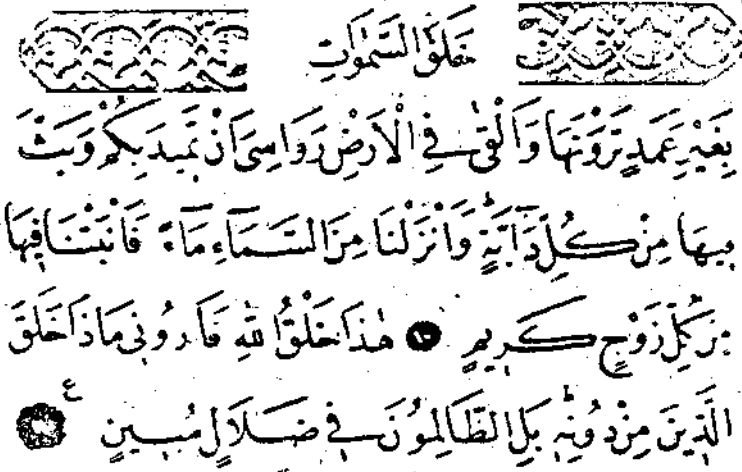 خَلَقَ السَّمٰوَاتِ
بِغَيْرِ عَمَدٍ تَرَوْنَهَا وَاَلْقٰى فِي الْاَرْضِ رَوَاسِيَ اَنْ تَمِيدَ بِكُمْ وَبَثَّ
فِيهَا مِنْ كُلِّ دَٓابَّةٍۜ وَاَنْزَلْنَا مِنَ السَّمَٓاءِ مَٓاءً فَاَنْبَتْنَا فِيهَا
مِنْ كُلِّ زَوْجٍ كَرِيمٍ ١٠ هٰذَا خَلْقُ اللّٰهِ فَاَرُونِي مَاذَا خَلَقَ
الَّذِينَ مِنْ دُونِهِۜ بَلِ الظَّالِمُونَ فِي ضَلَالٍ مُبِينٍ ع